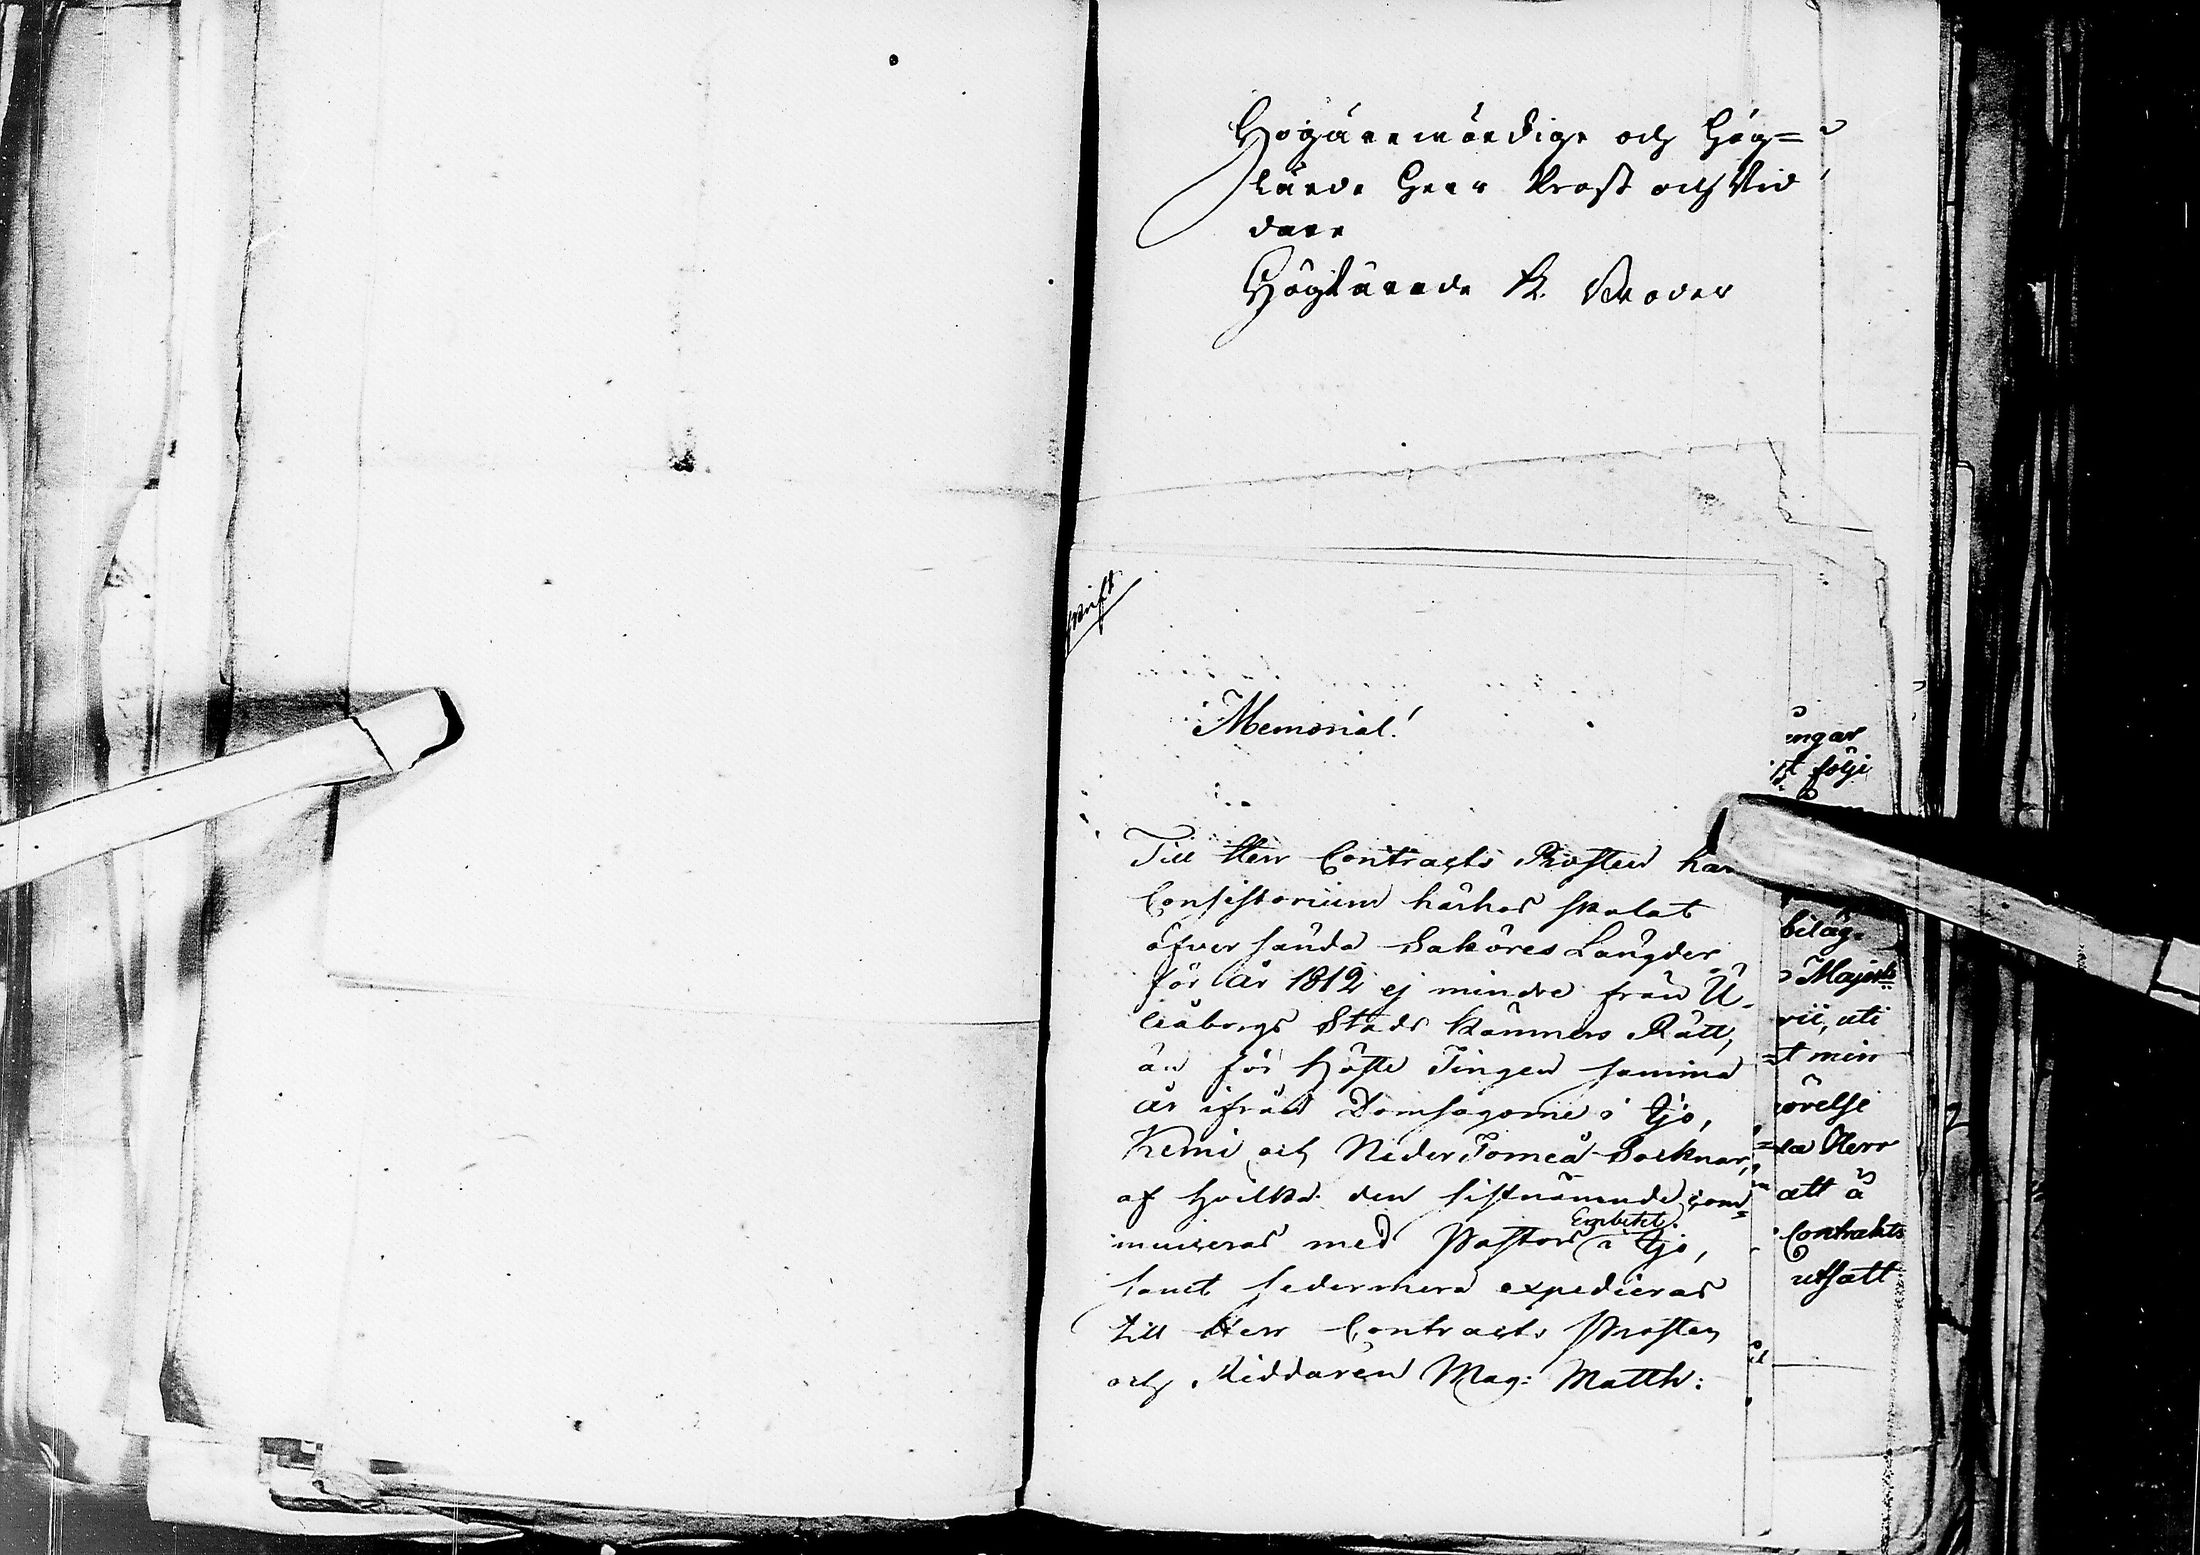 Högärewördige och Hög=
lärde Herr Prost och Rid
dare
Höglärade K. Broder
Memorial!
Till Herr Contracts Prosten har
Consistorium härhos skolat
öfversända Saköres Längder
för år 1812 ej mindre från U-
leåborgs Stads Kämners Rätt,
än för Höste Tingen samma
år ifrån Domsagorne i Ijo,
Kemi och Neder Torneå Socknar,
af hvilka den sistnämnde com=
muiceras med Pastors Embetet i Ijo,
samt sedermera expedieras
till Herr Contracts Prosten
och Riddaren Mag: Matth:
ungar
följe
biläg.
Majest:
rii, uti
=t min
örelse
Herr
att å
Contrakts
utsatt